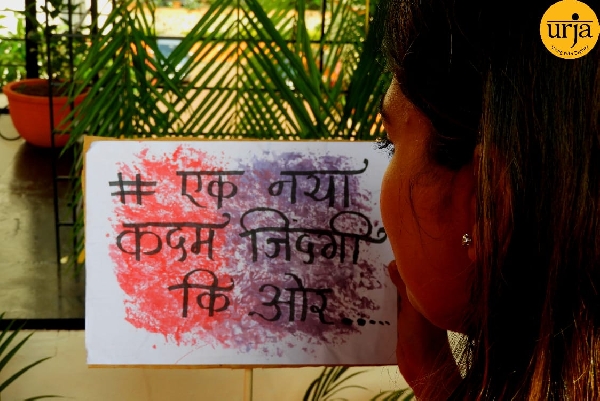 # एक नया
कदम जिंदगी
कि ओर.....
urja